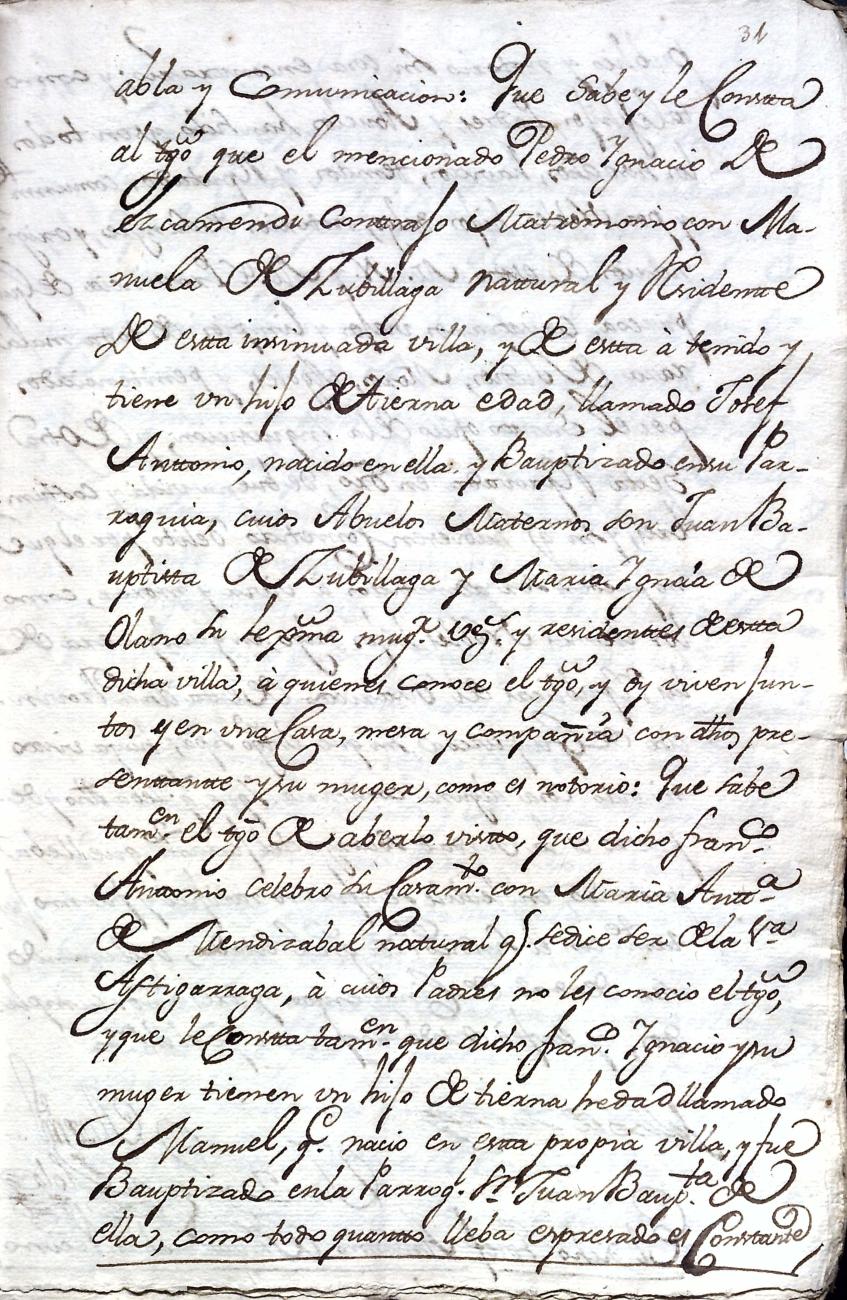 31
abla y Comunicacion: Que Sabe y le Constta
al tgō que el mencionado Pedro Ygnacio De
ezcamendi Conttrajo Matrimonio con Ma-
nuela De Zubillaga natural y Residentte
De estta insinuada villa, y De estta à tenido y
tiene vn hijo De tierna edad, llamado Josef
Anttonio, nacido en ella y Bauptizado en su Par-
roquia, cuios Abuelos Maternos son Juan Ba-
uptistta De Zubillaga y Maria Ygnaċia De
Olano su lexma mugr. vs. y residenttes De estta
dicha villa, à quienes conoce el tgō, y oy viven jun-
tos y en vna Casa, mesa y compañia con dhos pre-
senttantte y su muger, como es notorio: Que sabe
tamen. el tgō De aberlo vistto, que dicho franco.
Anttonio celebro su Casamto. con Maria Antta.
de Mendizabal natural q. se dice ser De la Va.
Astigarraga, à cuios Padres no les conocio el tgō,
y que le Constta tamen. que dicho Franco. Ygnacio y su
muger tienen vn hijo De tierna hedad llamado
Manuel, qe. nacio en estta propia villa, y fue
Bauptizado en la Parroql. Sn Juan Baupta. de
ella, como todo quantto lleba expresado es Constante